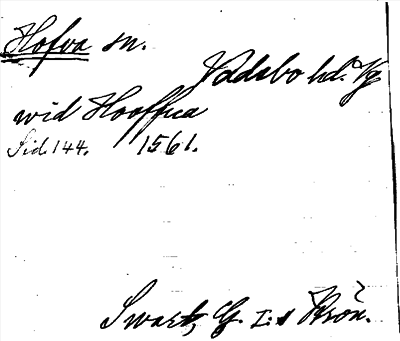 Hofva sn.
Vadsbo hd. Vg
wid Hooffua
Sid. 144. 1561.
Swart, G. I:s Krön.